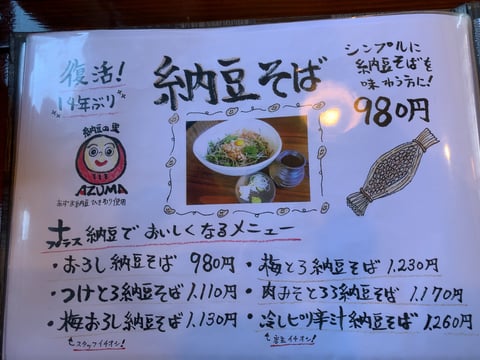 復活!
19年ぶり
納豆そば
シンプルに
納豆そばを
味わう方に!
980円
納豆の里
AZUMA
あずま納豆ひきわり使用
プラス納豆でおいしくなるメニュー
・おろし納豆そば 980円
・つけとろ納豆そば 1,110円
・梅おろし納豆そば 1,130円
スタッフイチオシ!
・梅とろ納豆そば 1,230円
・肉みそとろろ納豆そば 1,170円
・冷しピリ辛汁納豆そば 1,260円
店主イチオシ!